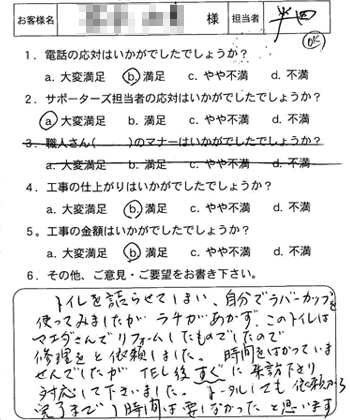 お客様名 様 担当者 半田
OK
1．電話の応対はいかがでしたでしょうか？
a. 大変満足 b. 満足 c. やや不満 d. 不満
2．サポーターズ担当者の応対はいかがでしたでしょうか？
a. 大変満足 b. 満足 c. やや不満 d. 不満
3．職人さん(　　　)のマナーはいかがでしたでしょうか？
a. 大変満足 b. 満足 c. やや不満 d. 不満
4．工事の仕上がりはいかがでしたでしょうか？
a. 大変満足 b. 満足 c. やや不満 d. 不満
5。工事の金額はいかがでしたでしょうか？
a. 大変満足 b. 満足 c. やや不満 d. 不満
6．その他、ご意見・ご要望をお書き下さい。
トイレを詰らせてしまい、自分でラバーカップを
使ってみましたが ラチがあかず、このトイレは
マエダさんでリフォームしたものでしたので
修理をと依頼しました。 時間をはかっていま
せんでしたが TEL後すぐに 来訪下さり
対応して下さいました。 トータルしても 依頼から
完了まで 1時間は要しなかったと思います